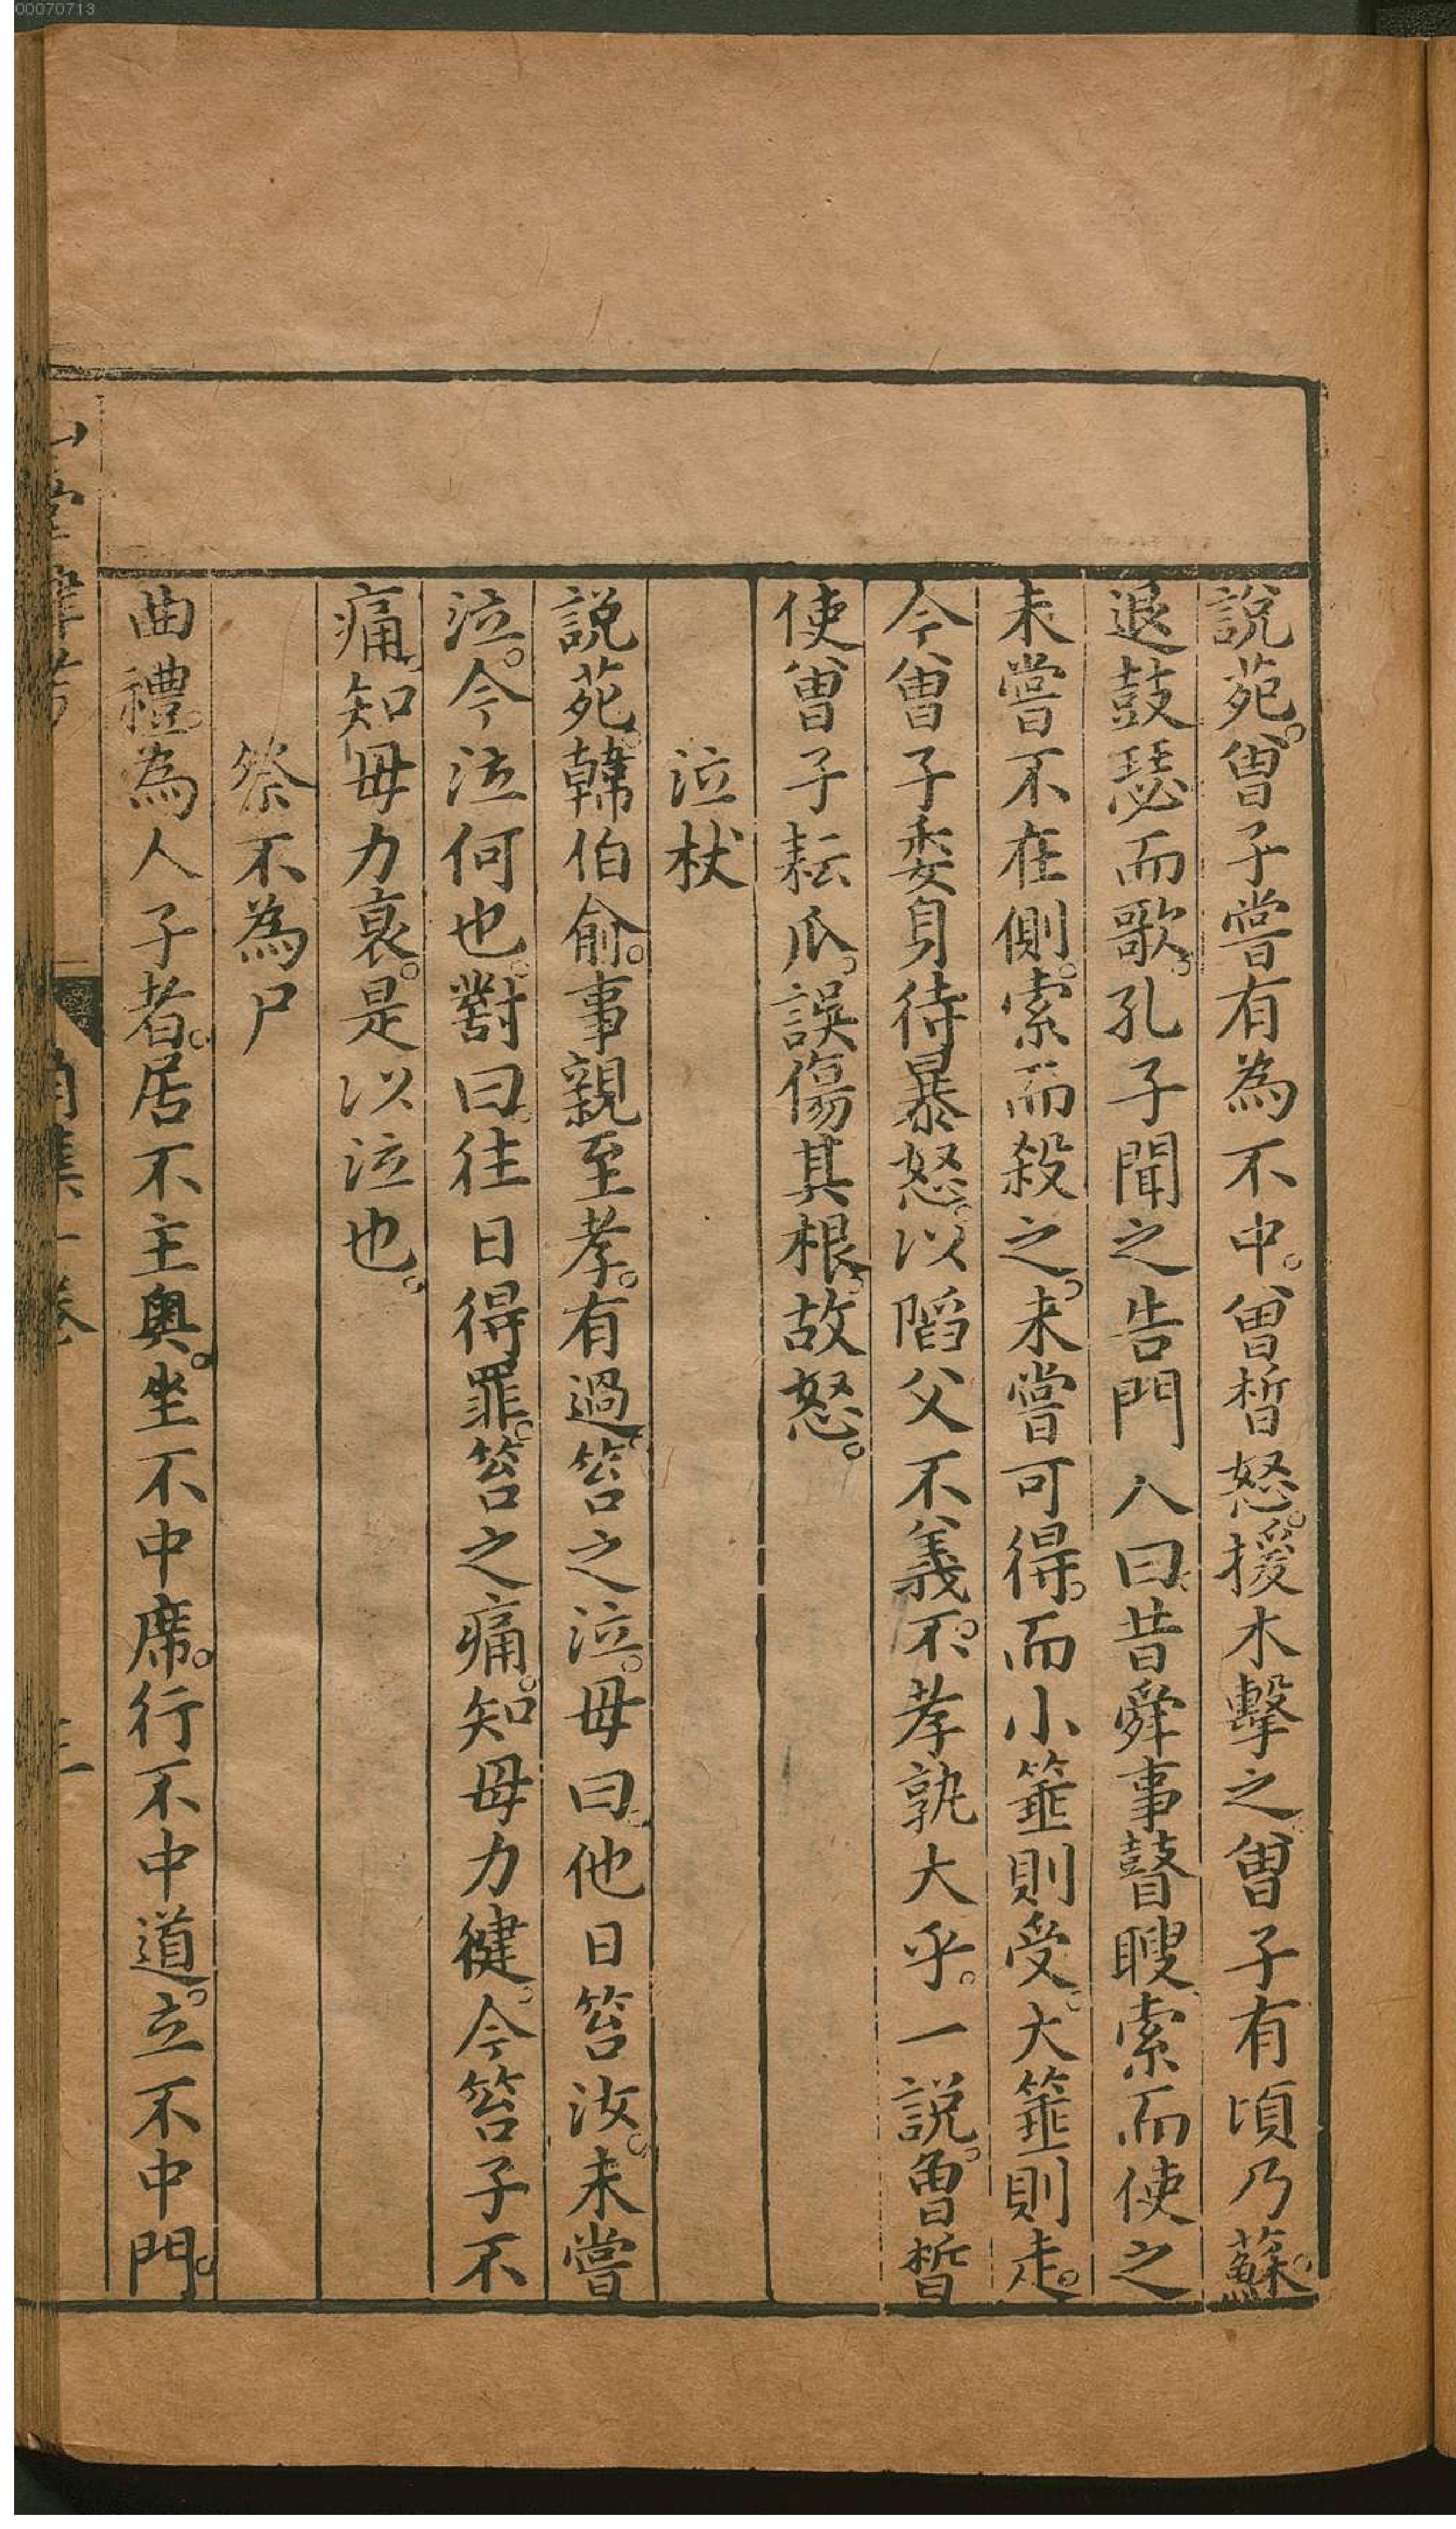 00070713
說苑。曾子嘗有為不中。曾晳怒。援木擊之曾子有頃乃蘇。
退鼓瑟而歌。孔子聞之告門人曰。昔舜事瞽瞍索而使之
未嘗不在側。索而殺之。未嘗可得。而小箠則受。大箠則走。
今曾子委身待暴怒。以陷父不義。不孝孰大乎。一說。曾晳
使曾子耘瓜。誤傷其根。故怒。
泣杖
說苑。韓伯俞。事親至孝。有過。笞之泣。母曰。他日笞汝。未嘗
泣。今泣何也。對曰。往日得罪。笞之痛。知母力健。今笞子不
痛。知母力衰。是以泣也。
祭不為尸
曲禮。為人子者。居不主奧。坐不中席。行不中道。立不中門。